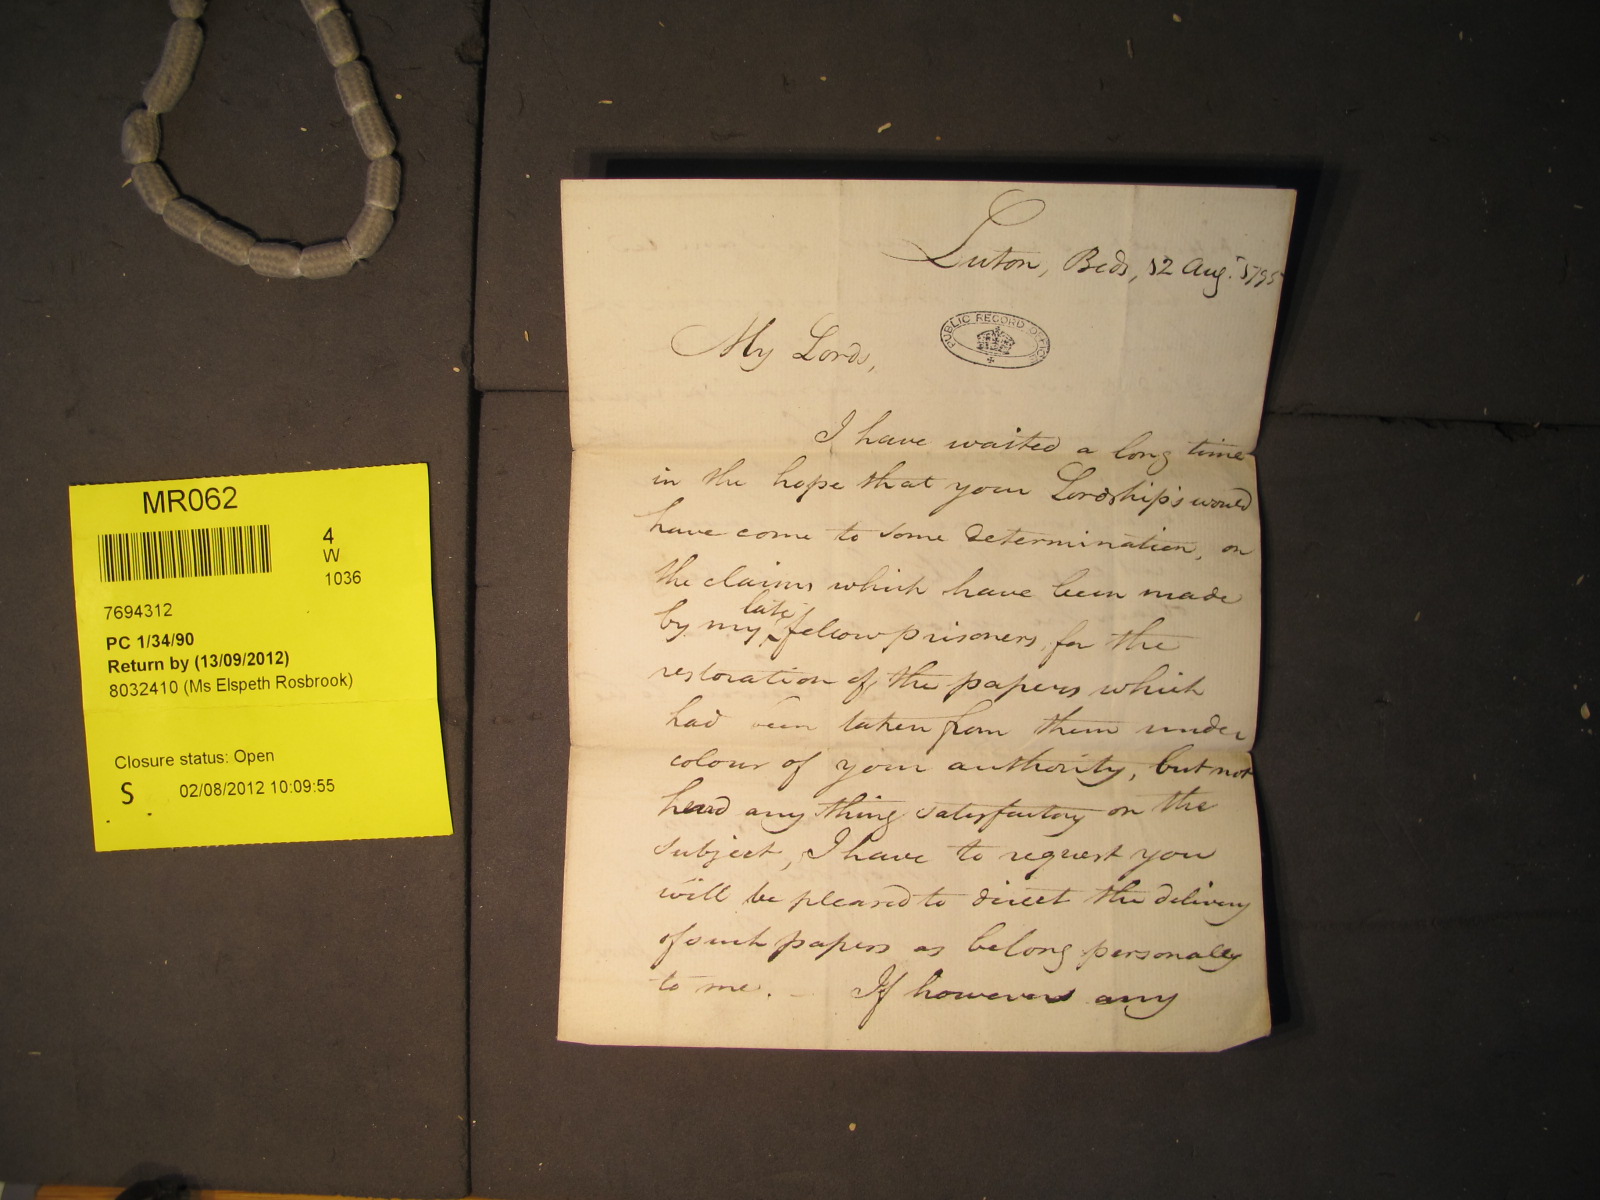 Luton, Beds, 12 Augt. 1795
PUBLIC RECORD OFFICE
My Lords,
I have waited a long time
in the hope that your Lordships would
have come to some determination, on
the claims which have been made
by my late fellow prisoners, for the
restoration of the papers which
had been taken from them under
colour of your authority, but not
heard any thing satisfactory on the
subject, I have to request you
will be pleased to direct the delivery
of such papers as belong personally
to me. - If however any
MR062
4
W
1036
7694312
PC 1/34/90
Return by (13/09/2012)
8032410 (Ms Elspeth Rosbrook)
Closure status: Open
S 02/08/2012 10:09:55